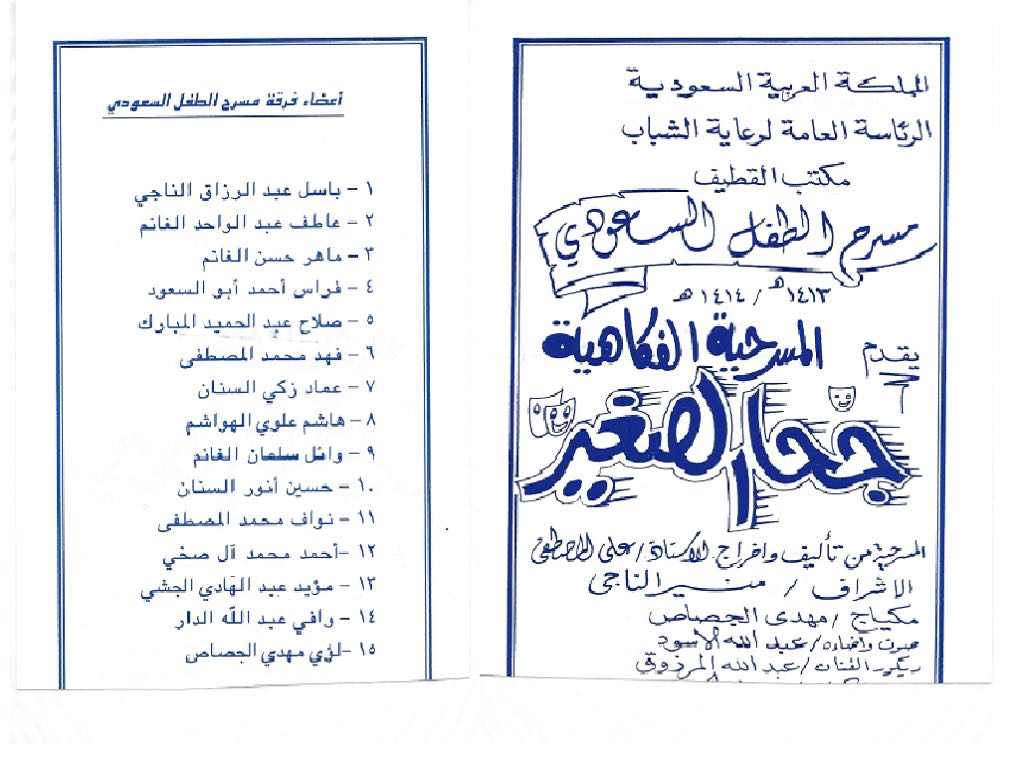 المملكة العربية السعودية
الرئاسة العامة لرعاية الشباب
مكتب القطيف
مسرح الطفل السعودي
١٤١٣هـ / ١٤١٤ هـ
يقدم المسرحية الفكاهية
جحا الصغير
المسرحية من تأليف واخراج الاستاذ / علي المصطفى
الاشراف / منير الناجي
مكياج / مهدي الجصاص
صوت واضاءه / عبد الله الأسود
ديكور الفنان / عبد الله المرزوق
أعضاء فرقة مسرح الطفل السعودي
١ - باسل عبد الرزاق الناجي
٢ - عاطف عبد الواحد الغانم
٣ - ماهر حسن الغانم
٤ - فراس أحمد أبو السعود
٥ - صلاح عبد الحميد المبارك
٦ - فهد محمد المصطفى
٧ - عماد زكي السنان
٨ - هاشم علوي الهواشم
٩ - وائل سلمان الغانم
١٠ - حسين أنور السنان
١١ - نواف محمد المصطفى
١٢ -أحمد محمد آل صخي
١٣ - مؤيد عبد الهادي الجشي
١٤ - وافي عبد الله الدار
١٥ -لؤي مهدي الجصاص